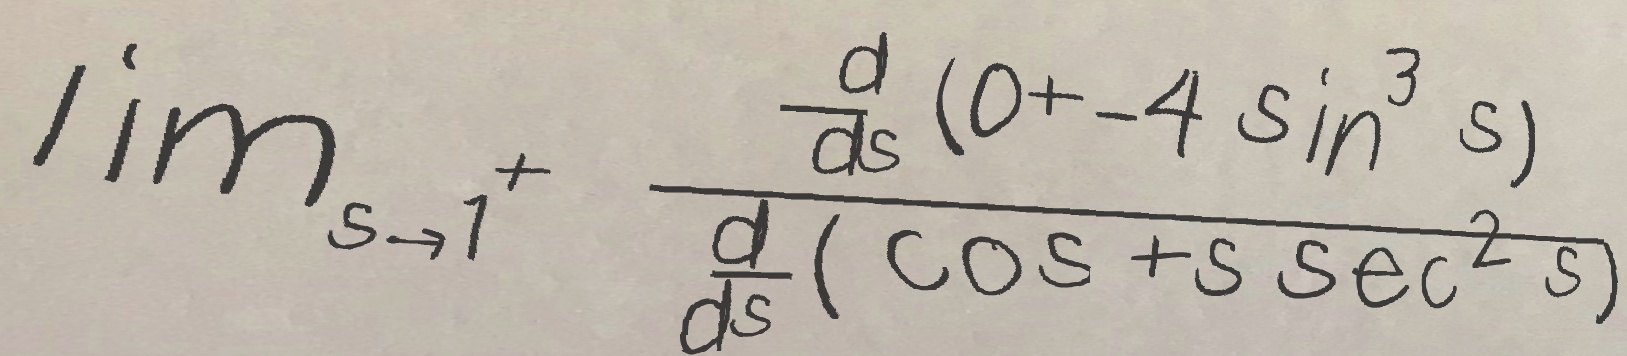 \lim_{s \to 1^+} \frac{\frac{d}{ds}(0 + -4 \sin^3 s)}{\frac{d}{ds}(\cos + s \sec^2 s)}